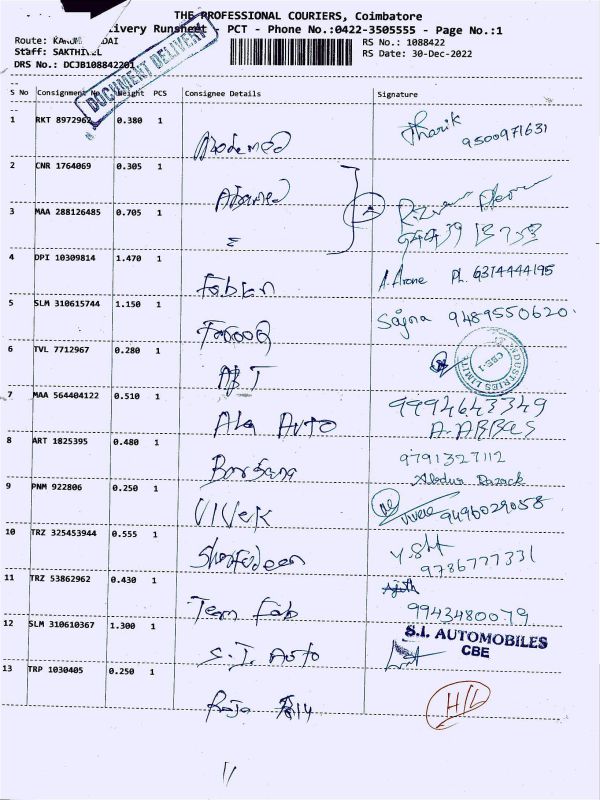 THE PROFESSIONAL COURIERS, Coimbatore
livery Runsheet PCT - Phone No.:0422-3505555 - Page No.:1
Route: RS No.: 1088422
Staff: SAKTHI EL RS Date: 30-Dec-2022
DRS No.: DCJB108842201
DOCUMENT DELIVERY
S No Consignment No Weight PCS Consignee Details Signature
1 RKT 8972962 0.380 1
9500971631
2 CNR 1764069 0.305 1
3 MAA 288126485 0.705 1
4 DPI 10309814 1.470 1 Fabian
Ph. 6374444195
5 SLM 310615744 1.150 1 Farooq Sajna 9489550620.
6 TVL 7712967 0.280 1 ABT
INDUSTRIES LIMITED
CBE-1
7 MAA 564404122 0.510 1 Ala Auto 9994643349
A. ABBAS
8 ART 1825395 0.480 1 9791327112
Abdur Razack
9 PNM 922806 0.250 1 Vivek 9496029058
10 TRZ 325453944 0.555 1 Sharfudeen
9786777331
11 TRZ 53862962 0.430 1 Team Fab Ajith
9943480079
12 SLM 310610367 1.300 1 S.I. Auto S.I. AUTOMOBILES
CBE
13 TRP 1030405 0.250 1 Raja
H/L